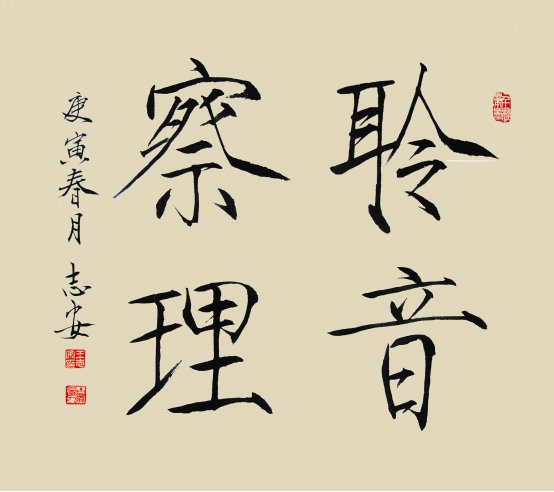 聆音
察理
庚寅春月 志安